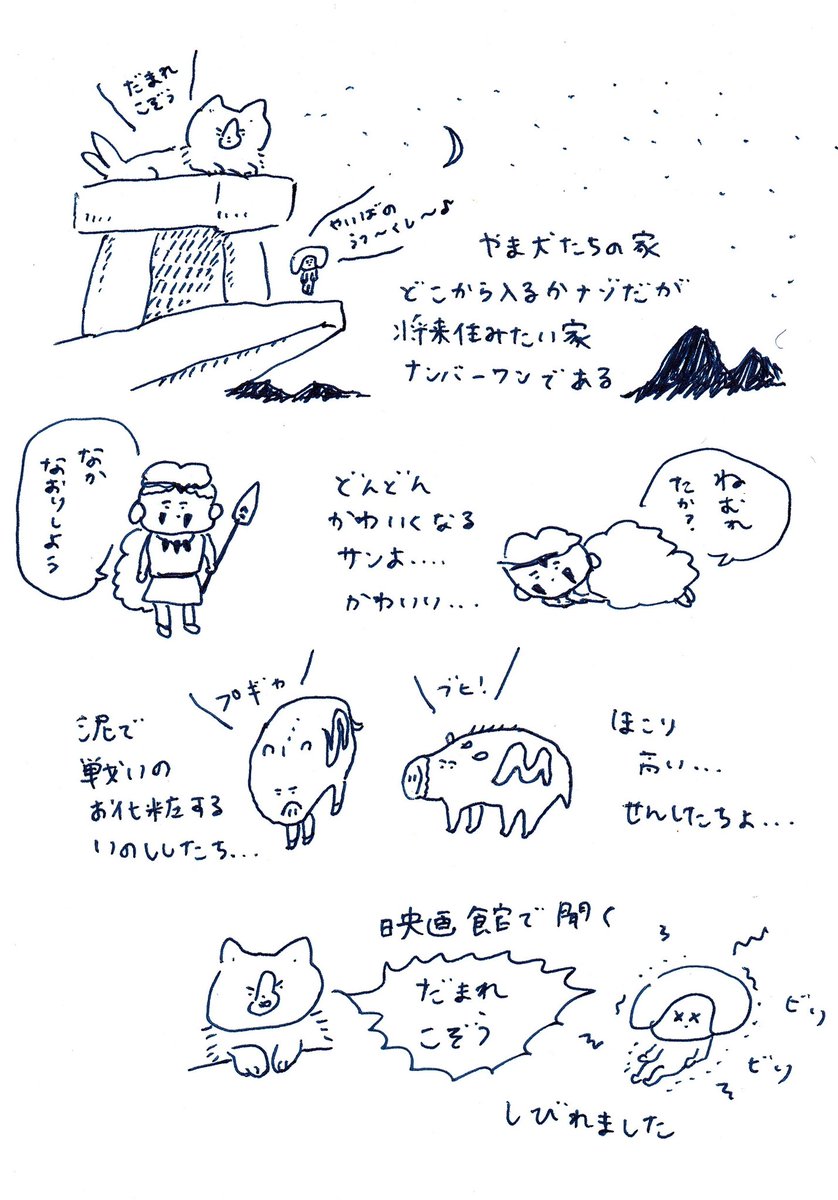 だまれ
こぞう
やいばの
うつ〜くし〜♪
やま犬たちの家
どこから入るかナゾだが
将来住みたい家
ナンバーワンである
なか
なおりしよう
どんどん
かわいくなる
サンよ....
かわいい...
ねむれ
たか?
泥で
戦いの
お化粧する
いのししたち...
プギャ
ブヒ!
ほこり
高い...
せんしたちよ...
映画館で聞く
だまれ
こぞう
ビリ
ビリ
しびれました